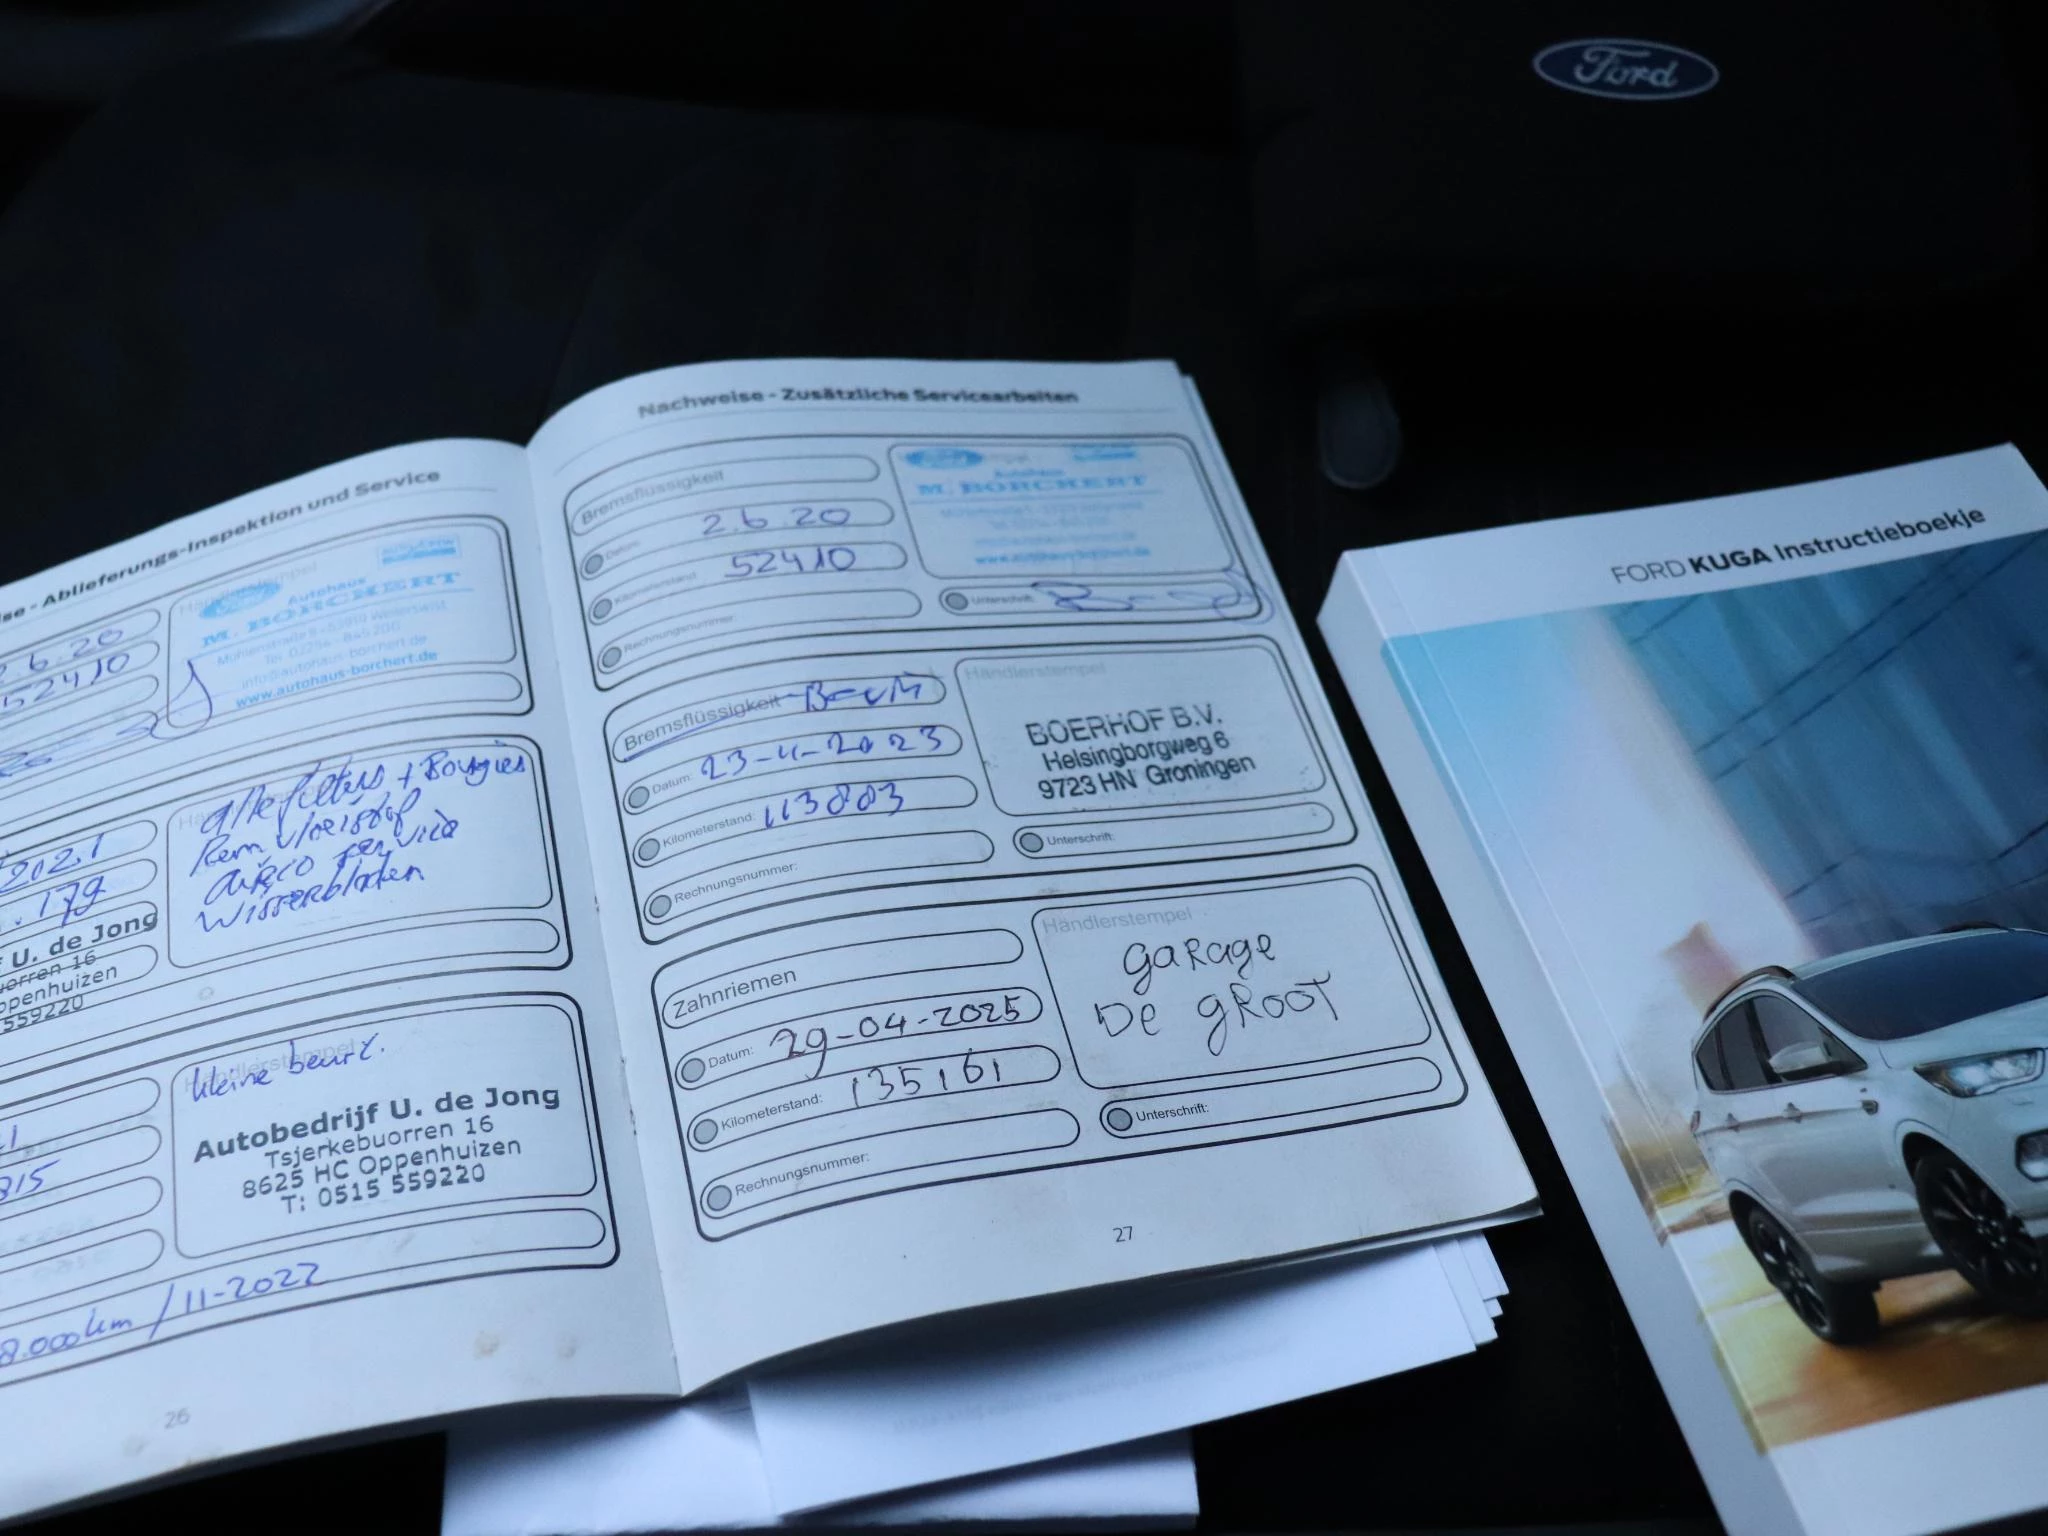 Ford
Ablieferungs-Inspektion und Service
2.6.20
52410
Händlerstempel
Autohaus
M. BORCHERT
Mühlenstraße 8 - 53919 Weilerswist
Tel. 02254 - 845 200
info@autohaus-borchert.de
www.autohaus-borchert.de
2021
179
U. de Jong
uorren 16
ppenhuizen
559220
alle filters + Bougies
Rem vloeistof
airco service
Wisserbladen
815
kleine beurt.
Händlerstempel
Autobedrijf U. de Jong
Tsjerkebuorren 16
8625 HC Oppenhuizen
T: 0515 559220
8.000 km / 11-2022
26
Nachweise - Zusätzliche Servicearbeiten
Bremsflüssigkeit
Datum: 2.6.20
Kilometerstand: 52410
Rechnungsnummer:
Autohaus
M. BORCHERT
www.autohaus-borchert.de
Unterschrift:
Bremsflüssigkeit
Datum: 23-4-2023
Kilometerstand: 113883
Rechnungsnummer:
Händlerstempel
BOERHOF B.V.
Helsingborgweg 6
9723 HN Groningen
Unterschrift:
Zahnriemen
Datum: 29-04-2025
Kilometerstand: 135161
Rechnungsnummer:
Händlerstempel
GARAGE
DE GROOT
Unterschrift:
27
FORD KUGA Instructieboekje